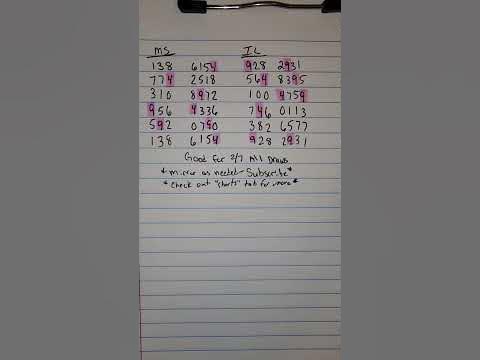 MS IL
138 6154 928 2931
774 2518 564 8395
310 8972 100 4759
956 4336 746 0113
592 0790 382 6577
138 6154 928 2931
Good for 2/7 All Draws
*mirror as needed - Subscribe*
*Check out "charts" tab for more*